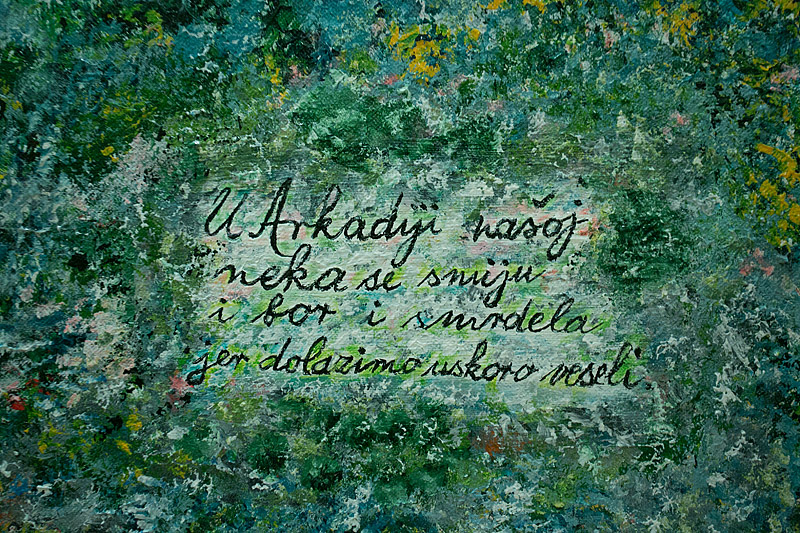 U Arkadiji našoj
neka se smiju
i bor i smrdela
jer dolazimo uskoro veseli.